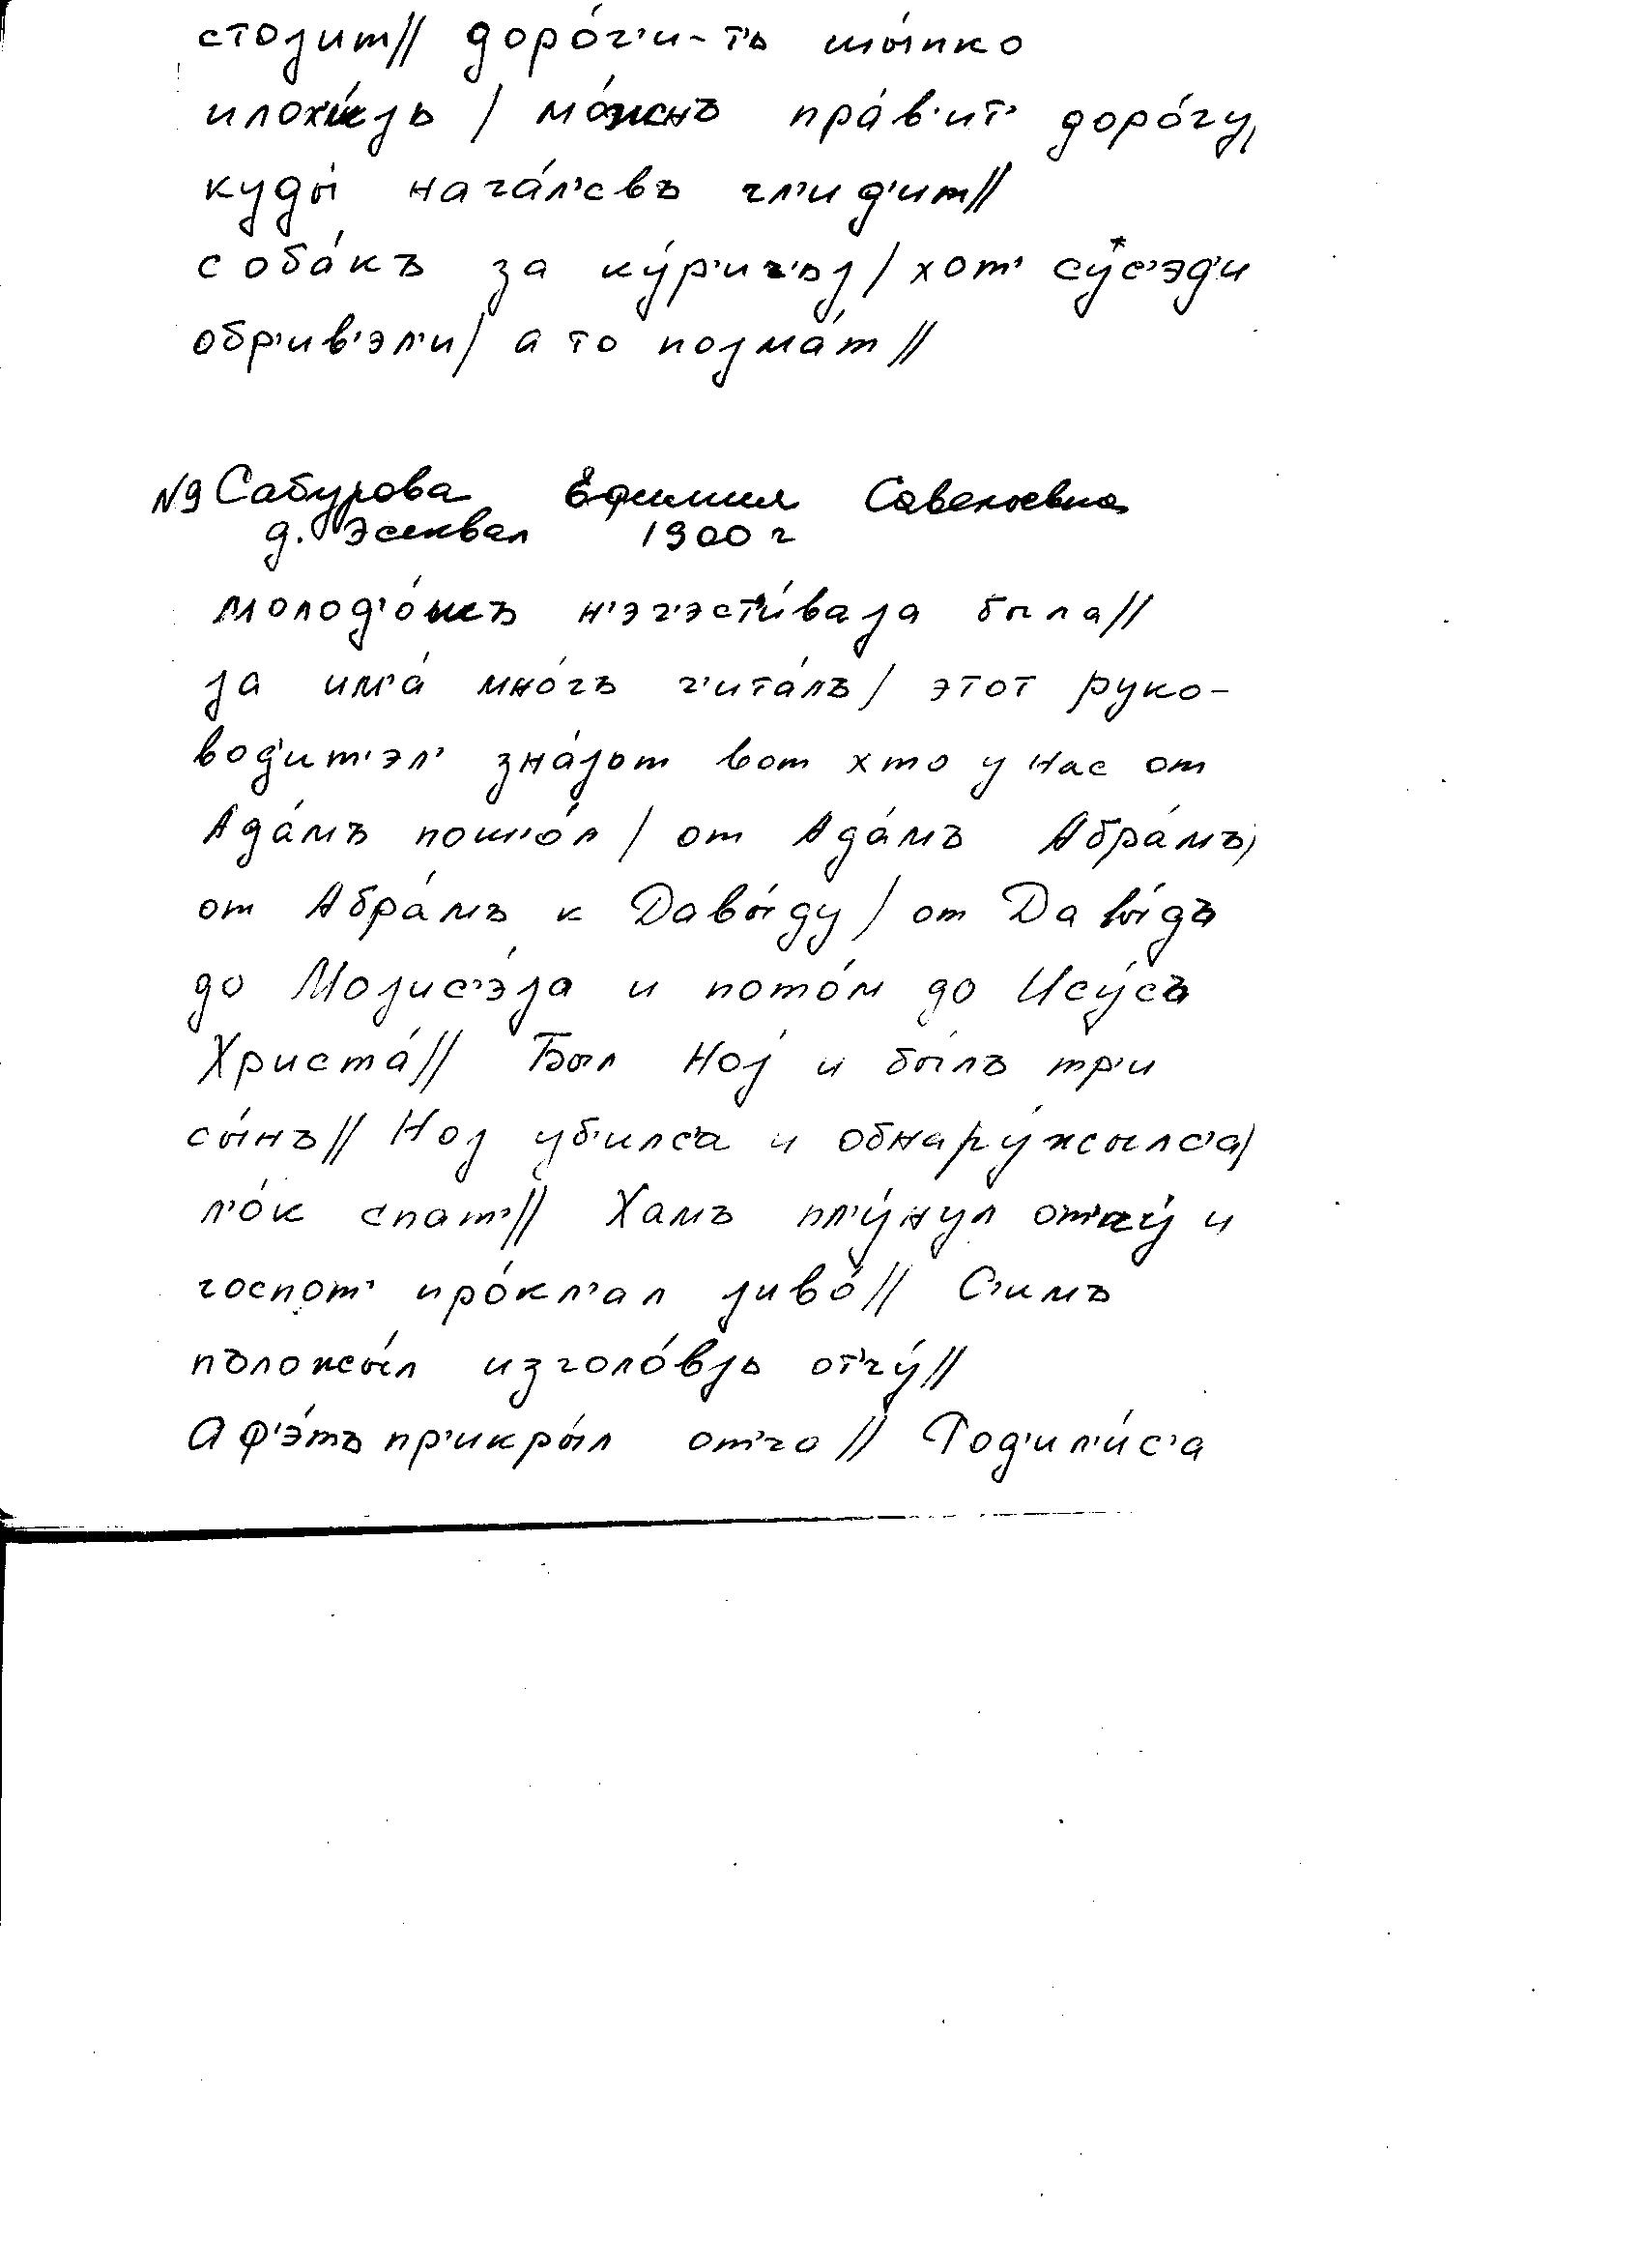 стоjит// доро́г'и-тъ шы́пко
плохи́jь / мо́жнъ пра́в'ит' доро́гу,
куды́ нача́л'свъ гл'ид'ит//
соба́къ за ку́р'иц'ьj / хот' су́с'эд'и
обр'ив'эл'и / а то поjма́т //
№9 Сабурова Ефимия Савельевна
д. Эсенвал 1900 г
молод'о́жъ н'эч'эст'и́ваjа была//
jа им'а́ мно́гъ ч'ита́лъ / этот руко-
вод'ит'эл' зна́jьт вот хто у нас от
Ада́мъ пош'о́л / от Ада́мъ Абра́мъ,
от Абра́мъ к Давы́ду / от Давы́дъ
до Моjис'э́jа и пото́м до Ису́съ
Христа́// Был Ноj и бы́лъ тр'и
сы́нъ// Ноj уб'илс'а и обнару́жылс'а/
л'о́к спат'// Хамъ пл'у́нул отцу́ и
госпот' про́кл'ал jиво́// С'имъ
пъложы́л изголо́вjь отцу́//
Аф'э́тъ пр'икры́л от'ца// Род'ил'и́с'а